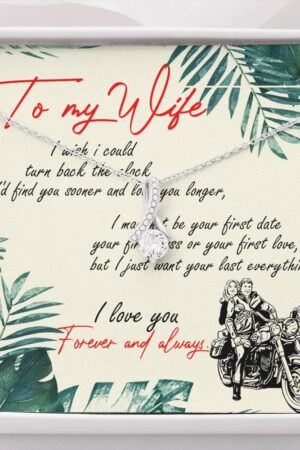 To my Wife
I wish i could
turn back the clock
I'd find you sooner and love you longer,
I may not be your first date
your first kiss or your first love,
but I just want your last everything
I love you
Forever and always.